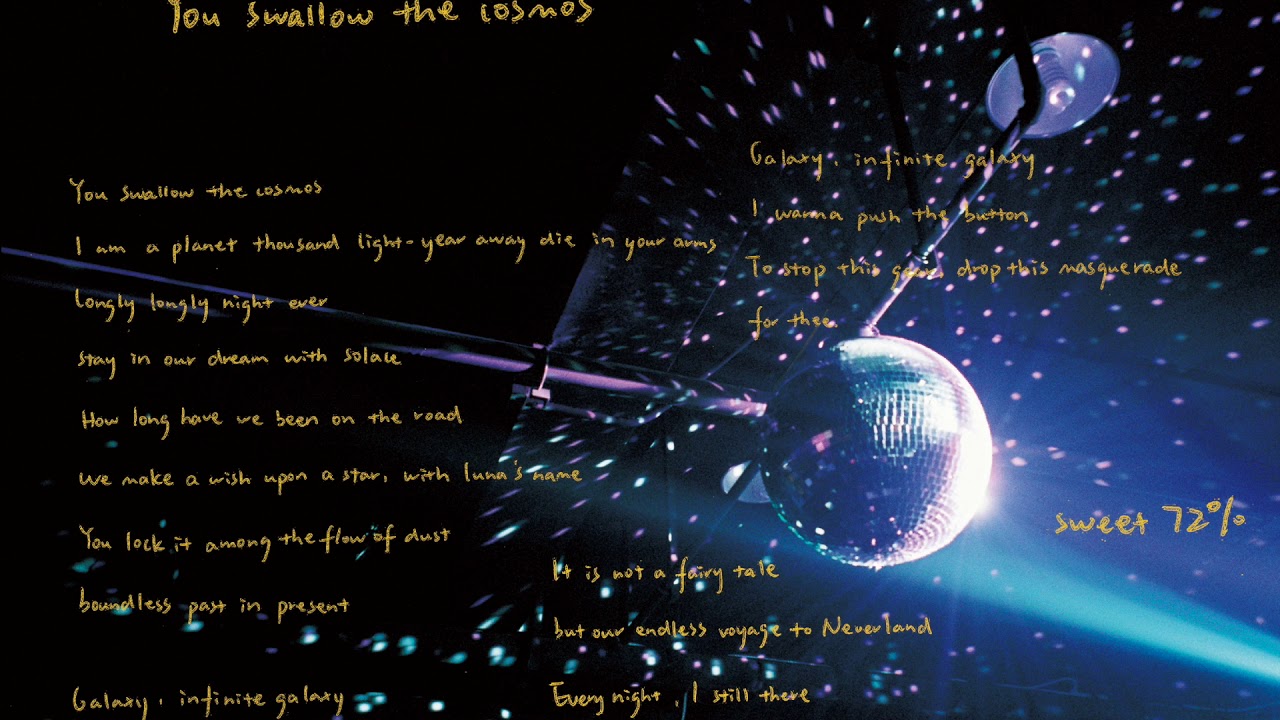 You swallow the cosmos
You swallow the cosmos
I am a planet thousand light-year away die in your arms
longly longly night ever
stay in our dream with solace
How long have we been on the road
we make a wish upon a star, with luna's name
You lock it among the flow of dust
boundless past in present
Galaxy, infinite galaxy
It is not a fairy tale
but our endless voyage to Neverland
Every night, I still there
Galaxy, infinite galaxy
I wanna push the button
To stop this drop this masquerade
for thee
sweet 72%